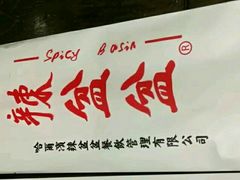 Spicy Basin
辣盆盆®
哈爾濱辣盆盆餐飲管理有限公司